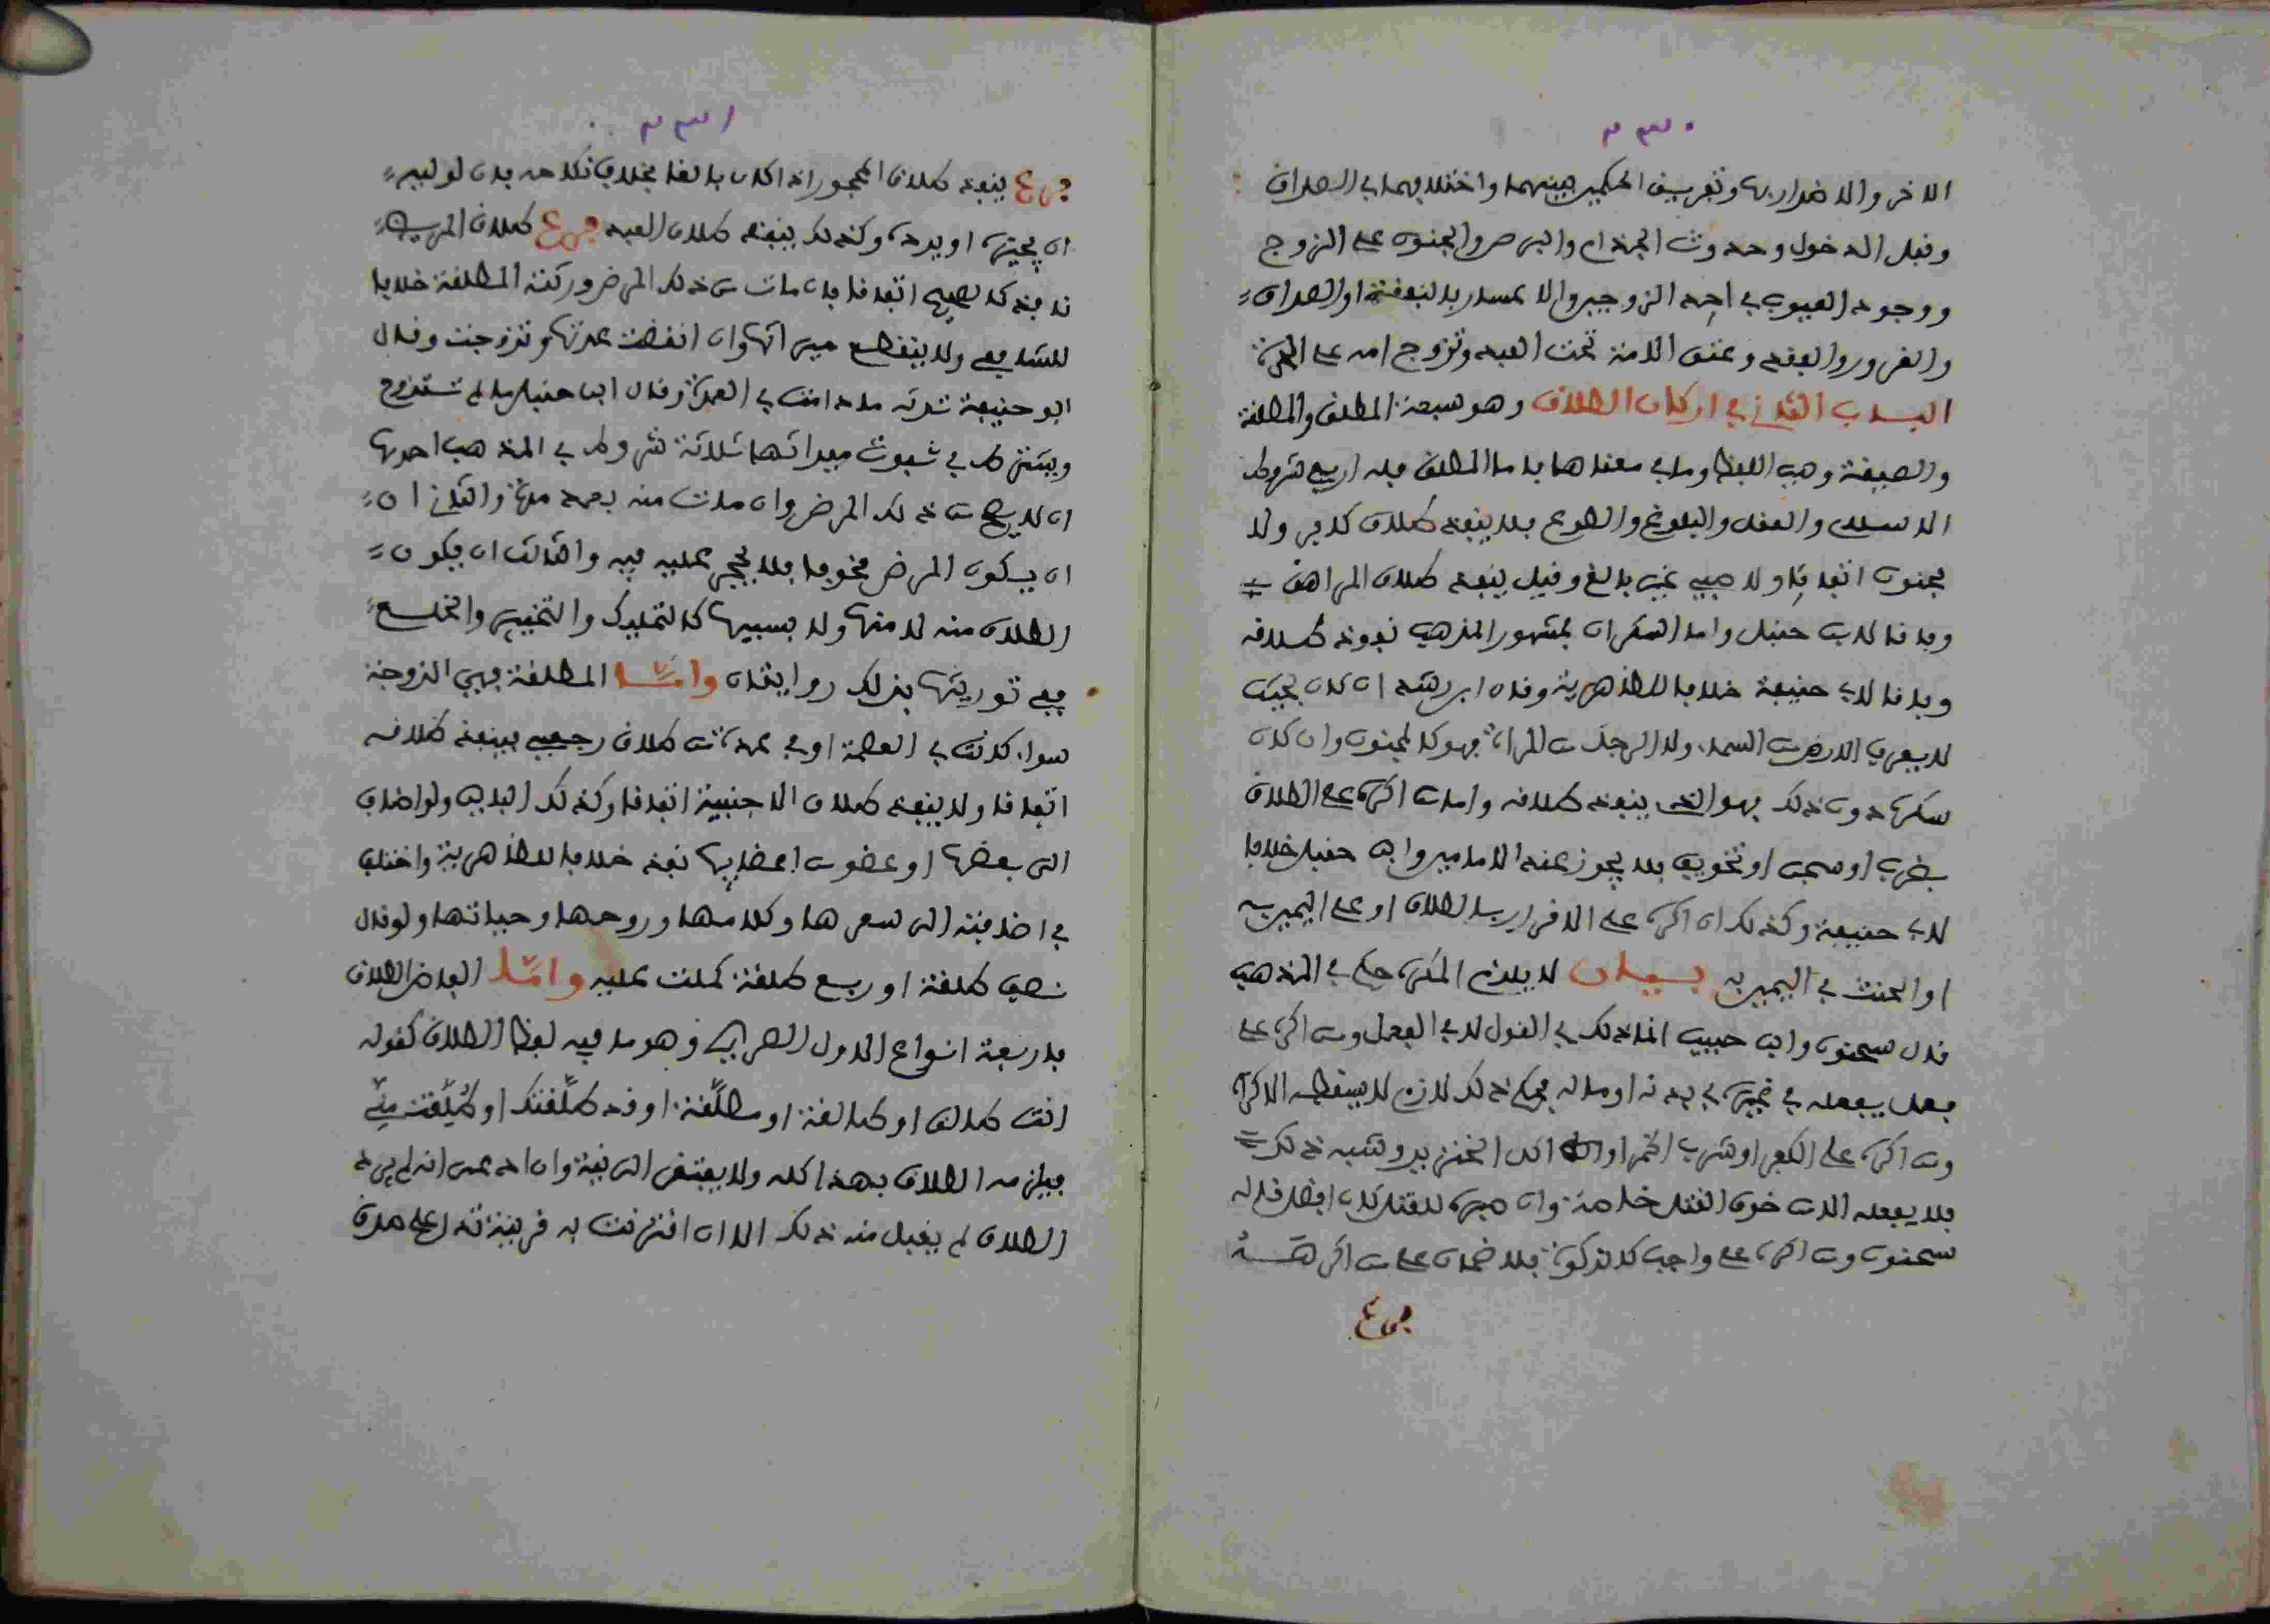 ٢٣٠
الاخر والاضرار بها وتفريق الحكمين بينهما واختلافهما في الصداق
وقبل الدخول وحدوث الجذام والبرص والجنون على الزوج
ووجود العيوب في احد الزوجين والاعسار بالنفقة او الصداق
والغرور والفقد وعتق الامة تحت العبد وتزوج امة على الحرة
البــاب الثاني في اركان الطلاق وهو سبعة المطلق والمطلقة
والصيغة وهي اللفظ وما في معناها فاما المطلق فله اربع شروط
الاسلام والعقل والبلوغ والطوع فلا ينفذ طلاق كافر ولا
مجنون اتفاقا ولا صبي غير بالغ وقيل ينفذ طلاق المراهق
وفاقا لابن حنبل واما السكران فمشهور المذهب نفوذ طلاقه
وفاقا لابي حنيفة خلافا للظاهرية وقال ابن رشد ان كان بحيث
لا يعرف الارض من السماء ولا الرجل من المراة فهو كالمجنون وان كان
سكره دون ذلك فهو الذي ينفذ طلاقه واما من اكره على الطلاق
بضرب او سجن او تخويف فلا يجوز عند الامامين وابن حنبل خلافا
لابي حنيفة وكذلك ان اكره على الاقرار بالطلاق او على اليمين به
او الحنث في اليمين به بيــان لا يلزم المكره حكم في المذهب
قال سحنون وابن حبيب انما ذلك في القول لا في الفعل ومن اكره على
فعل يفعله في غيره في بدنه او ماله فحكم ذلك لازم لا يسقطه الاكراه
ومن اكره على الكفر او شرب الخمر او اكل الخنزير وشبه ذلك
فلا يفعله الا من خوف القتل خاصة وان صبر للقتل كان افضل قاله
سحنون ومن اكره على واجب كالزكوة فلا ضمان على من اكرهــه
فرع
٢٣١
فرع ينفذ طلاق المحجور اذا كان بالغا بخلاف نكاحه فان لوليه
ان يجيزه او يرده وكذلك ينفذ طلاق العبد فرع طلاق المريض
نافذ كالصحيح اتفاقا فان مات من ذلك المرض ورثته المطلقة خلافا
للشافعي ولا ينقطع ميراثها وان انقضت عدتها وتزوجت وقال
ابو حنيفة ترثه ما دامت في العدة وقال ابن حنبل ما لم تتزوج
ويشترط في ثبوت ميراثها ثلاثة شروط في المذهب احدها
ان لا يصح من ذلك المرض وان مات منه بعد مدة والثاني ان
ان يكون المرض مخوفا فلا يحجر عليه فيه والثالث ان يكون
الطلاق منه لا منها ولا بسببها كالتمليك والتخيير والخلــع
ففي توريثها بذلك روايتان وامّــا المطلقة فهي الزوجة
سواء كانت في العصمة او في عدة من طلاق رجعي فينفذ طلاقه
اتفاقا ولا ينفذ طلاق الاجنبية اتفاقا وكذلك البائن ولو اضاف
الى بعضها او عضو من اعضائها نفذ خلافا للظاهرية واختلف
في اضافته الى شعرها وكلامها وروحها وحياتها ولو قال
نصف طلقة او ربع طلقة كملت عليه وامّا الفاظ الطلاق
فاربعة انواع الاول الصريح وهو ما فيه لفظ الطلاق كقوله
انت طالق او طالقة او مطلّقة او قد طلّقتك او طُلّقت منّي
فيلزمه الطلاق بهذا كله ولا يفتقر الى نية وان ادعى انه لم يرد
الطلاق لم يقبل منه ذلك الا ان اقترنت به قرينة تدل على صدق